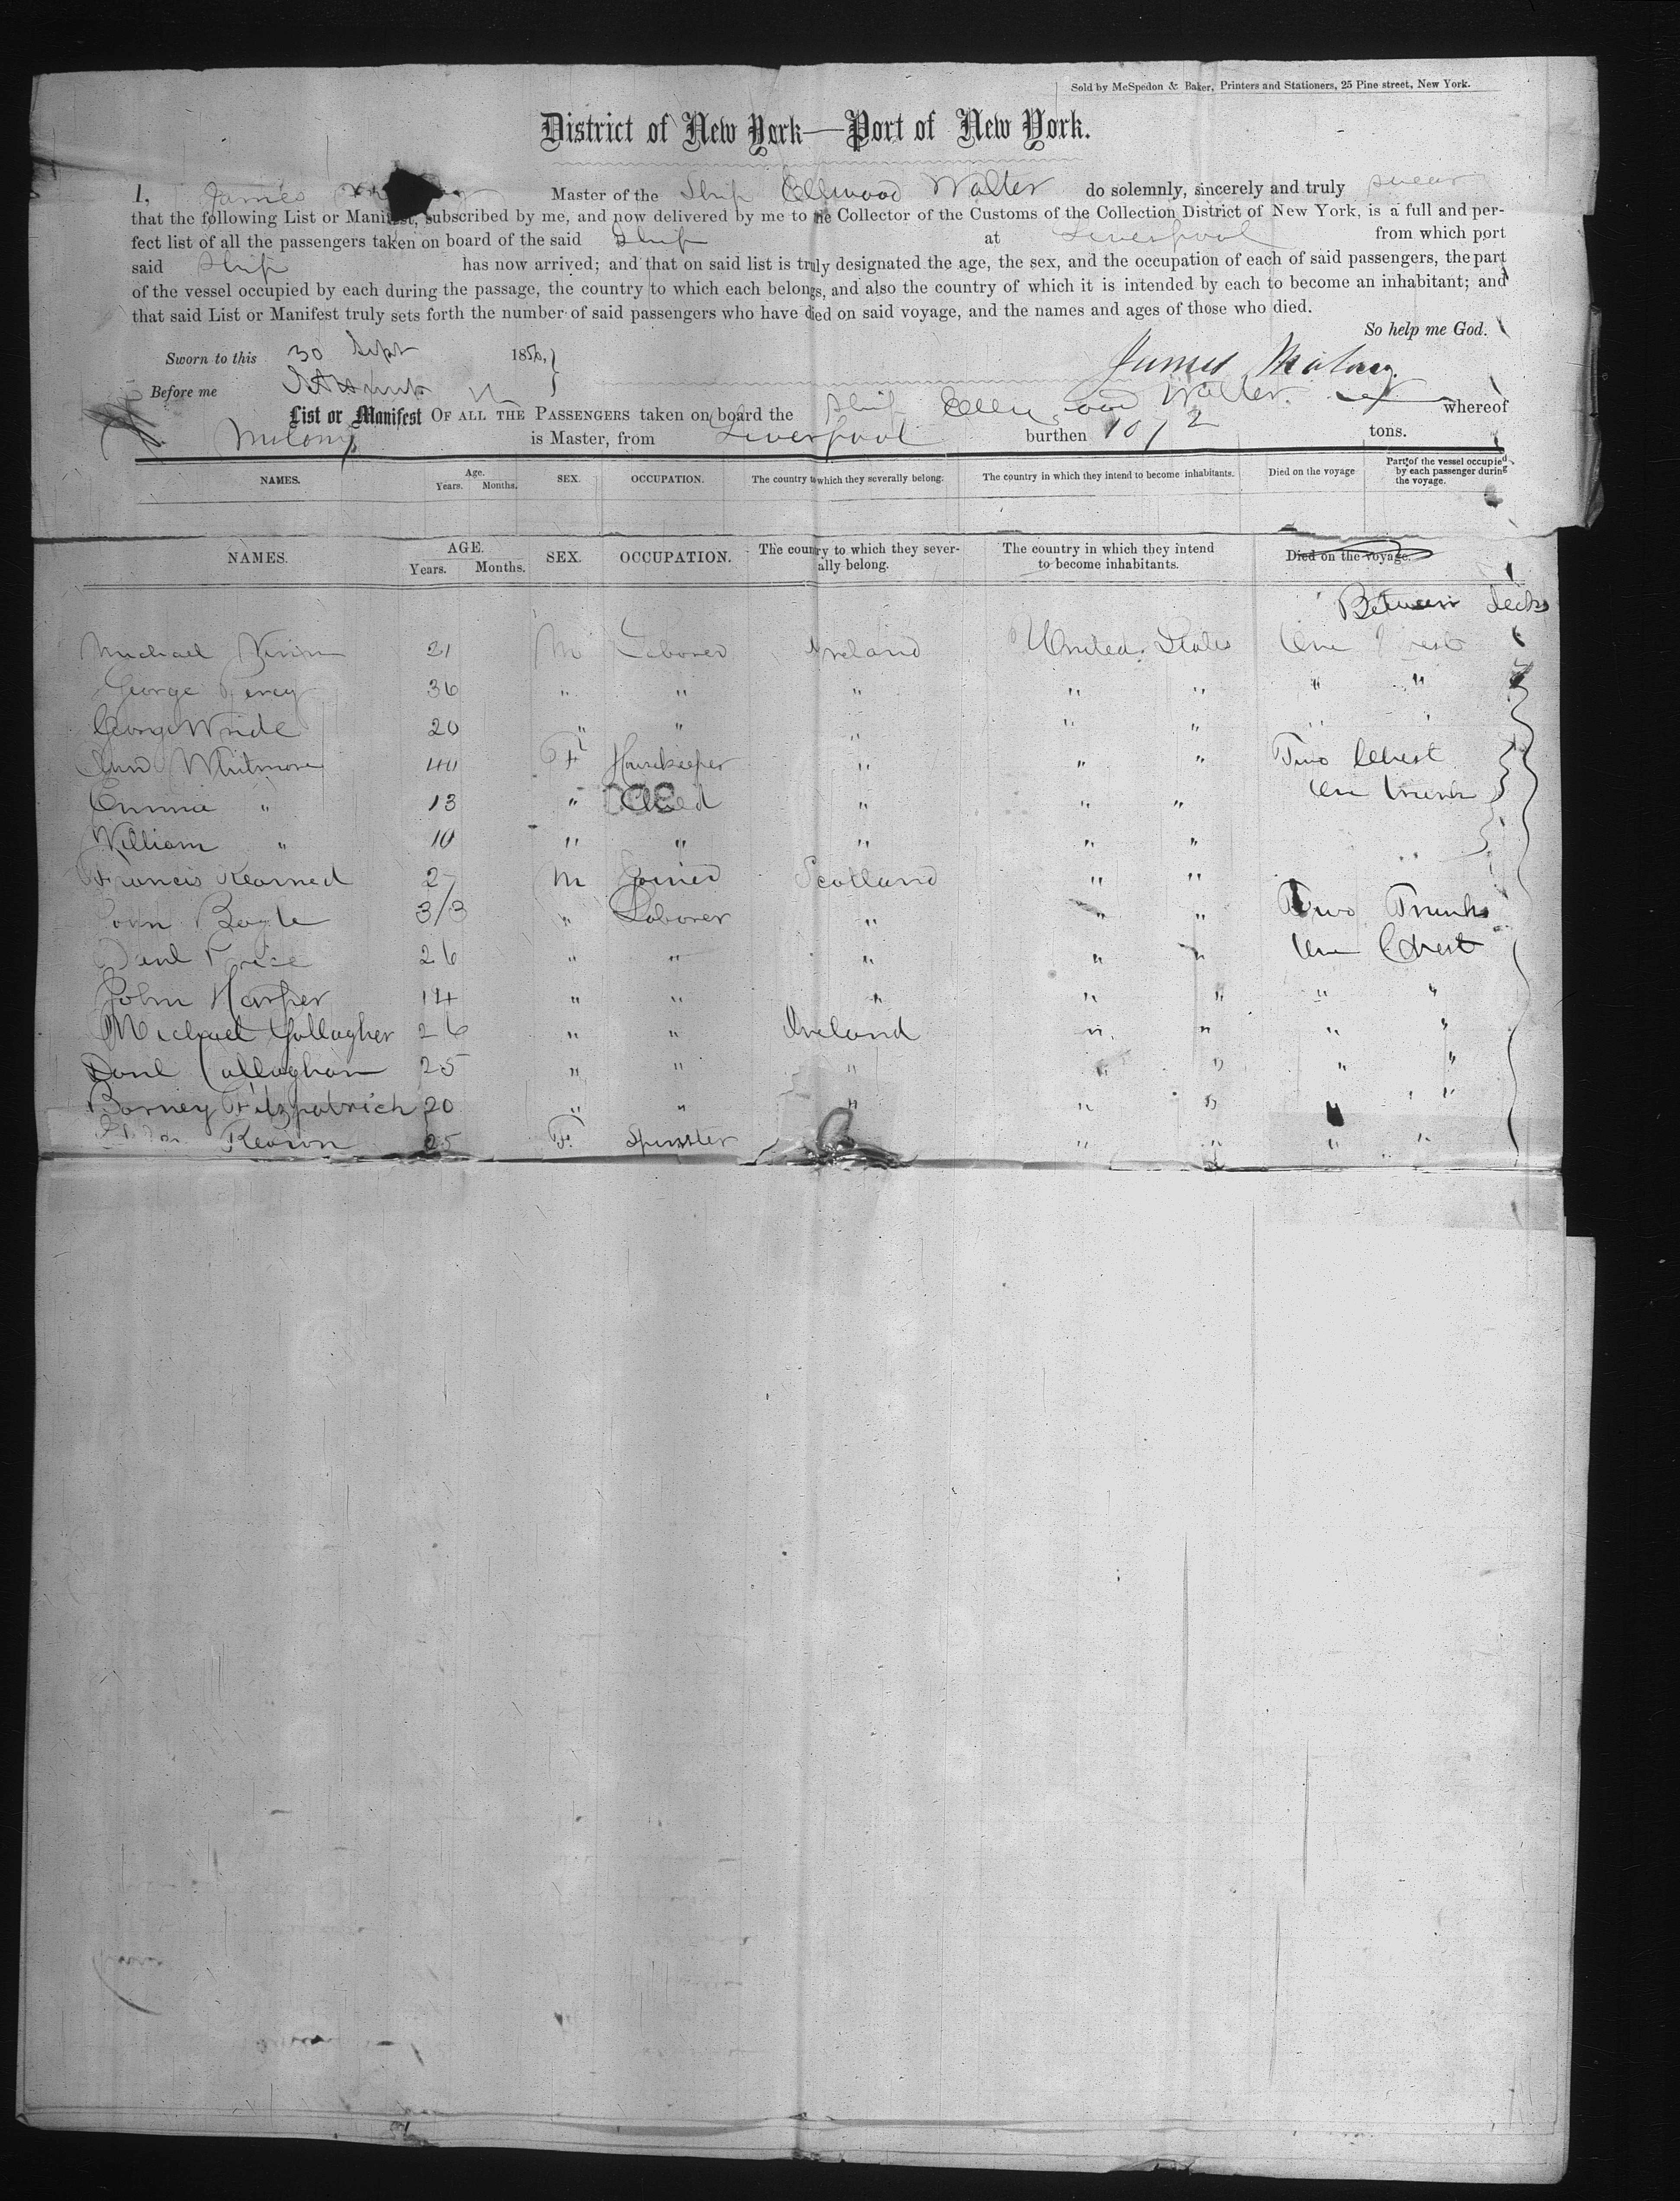 Sold by McSpedon & Baker, Printers and Stationers, 25 Pine street, New York.
District of New York—Port of New York.
I, James Master of the Ship Ellwood Walter do solemnly, sincerely and truly swear
that the following List or Manifest, subscribed by me, and now delivered by me to the Collector of the Customs of the Collection District of New York, is a full and per-
fect list of all the passengers taken on board of the said Ship at Liverpool from which port
said Ship has now arrived; and that on said list is truly designated the age, the sex, and the occupation of each of said passengers, the part
of the vessel occupied by each during the passage, the country to which each belongs, and also the country of which it is intended by each to become an inhabitant; and
that said List or Manifest truly sets forth the number of said passengers who have died on said voyage, and the names and ages of those who died.
So help me God.
Sworn to this 30 Sept 1856,
James Malony.
Before me
List or Manifest OF ALL THE PASSENGERS taken on board the Ship Ellwood Walter whereof
Malony is Master, from Liverpool burthen 1072 tons.
NAMES. Age. Years. Months. SEX. OCCUPATION. The country to which they severally belong. The country in which they intend to become inhabitants. Died on the voyage Part of the vessel occupied by each passenger during the voyage.
NAMES. AGE. Years. Months. SEX. OCCUPATION. The country to which they sever-ally belong. The country in which they intend to become inhabitants. Died on the voyage.
Between decks
Michael 21 M Laborer Ireland United States One Chest
George Percy 36 " " " " " " "
George Wride 20 " " " " " " "
Ann Whitmore 40 F Housekeeper " " " Two Chest
Emma " 13 " Child " " " One trunk
William " 10 " " " " "
Francis Kearned 27 M Joiner Scotland " "
John Boyle 3/3 " Laborer " " " Two Trunks
Danl 26 " " " " " One Chest
John Harper 14 " " " " " " "
Michael Gallagher 26 " " Ireland " " " "
Danl Callaghan 25 " " " " " " "
Barney Fitzpatrick 20 " " " " " " "
Kearon 25 F. Spinster " " " "